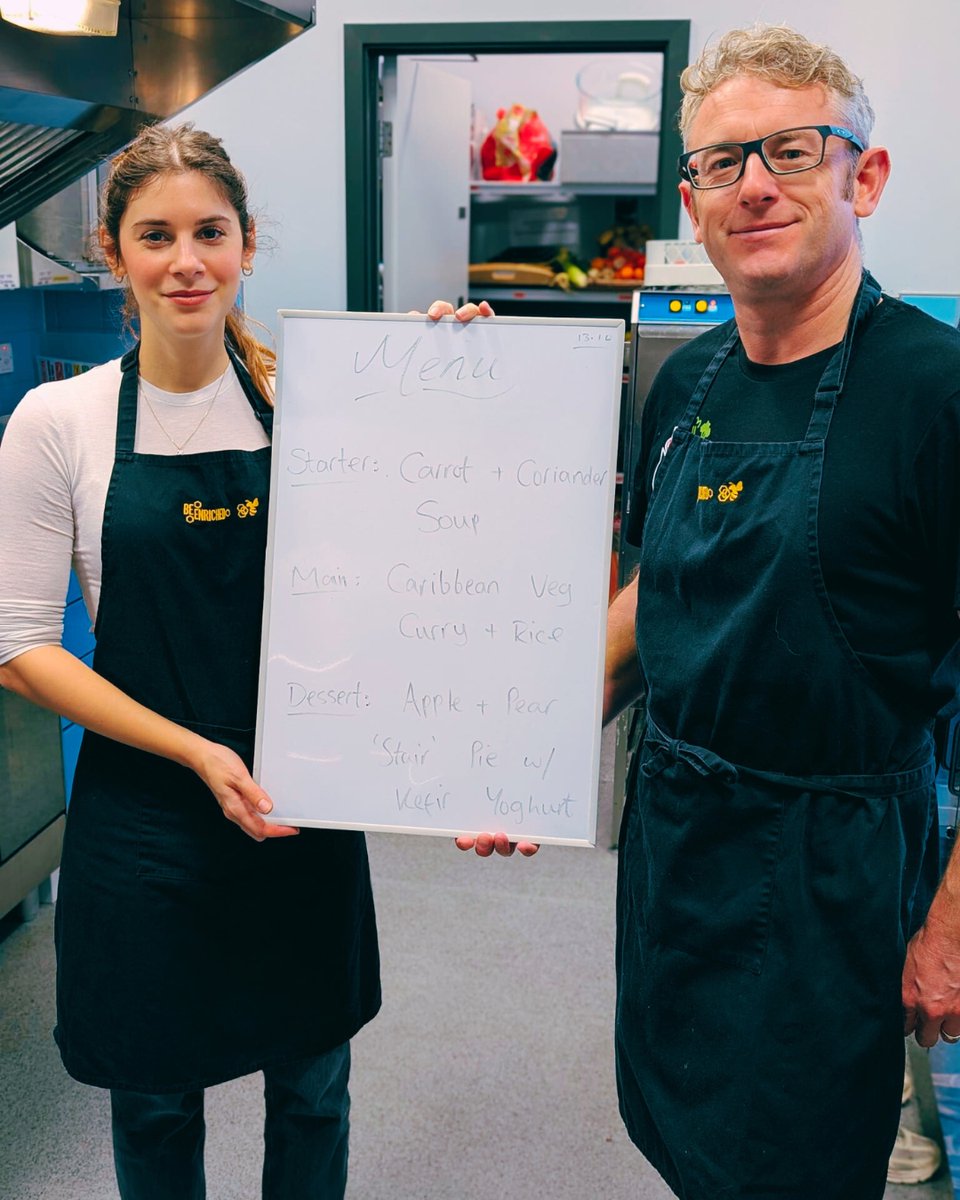 Menu
Starter: Carrot + Coriander
Soup
Main: Caribbean Veg
Curry + Rice
Dessert: Apple + Pear
'Stair' Pie w/
Kefir Yoghurt
BE ENRICHED